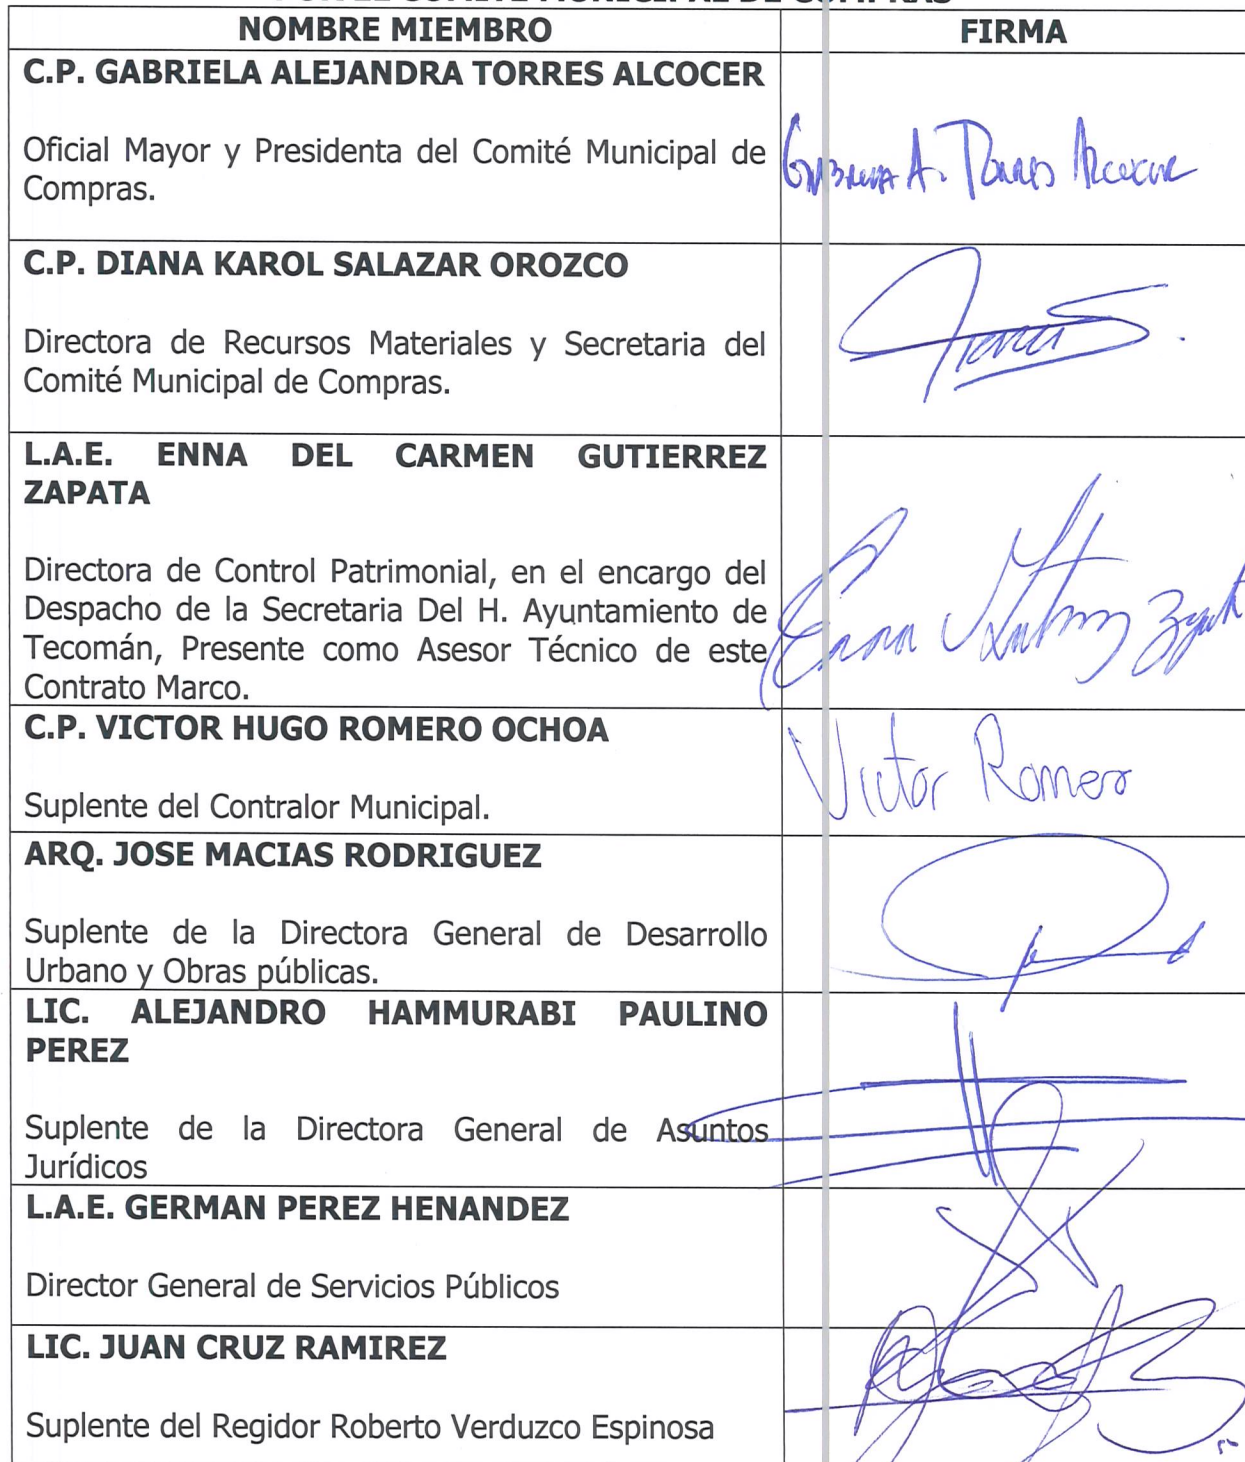 POR EL COMITÉ MUNICIPAL DE COMPRAS
NOMBRE MIEMBRO FIRMA
C.P. GABRIELA ALEJANDRA TORRES ALCOCER
Oficial Mayor y Presidenta del Comité Municipal de
Compras.
Gabriela A. Torres Alcocer
C.P. DIANA KAROL SALAZAR OROZCO
Directora de Recursos Materiales y Secretaria del
Comité Municipal de Compras.
L.A.E. ENNA DEL CARMEN GUTIERREZ
ZAPATA
Directora de Control Patrimonial, en el encargo del
Despacho de la Secretaria Del H. Ayuntamiento de
Tecomán, Presente como Asesor Técnico de este
Contrato Marco.
Enna Gutierrez Zapata
C.P. VICTOR HUGO ROMERO OCHOA
Suplente del Contralor Municipal.
Victor Romero
ARQ. JOSE MACIAS RODRIGUEZ
Suplente de la Directora General de Desarrollo
Urbano y Obras públicas.
LIC. ALEJANDRO HAMMURABI PAULINO
PEREZ
Suplente de la Directora General de Asuntos
Jurídicos
L.A.E. GERMAN PEREZ HENANDEZ
Director General de Servicios Públicos
LIC. JUAN CRUZ RAMIREZ
Suplente del Regidor Roberto Verduzco Espinosa